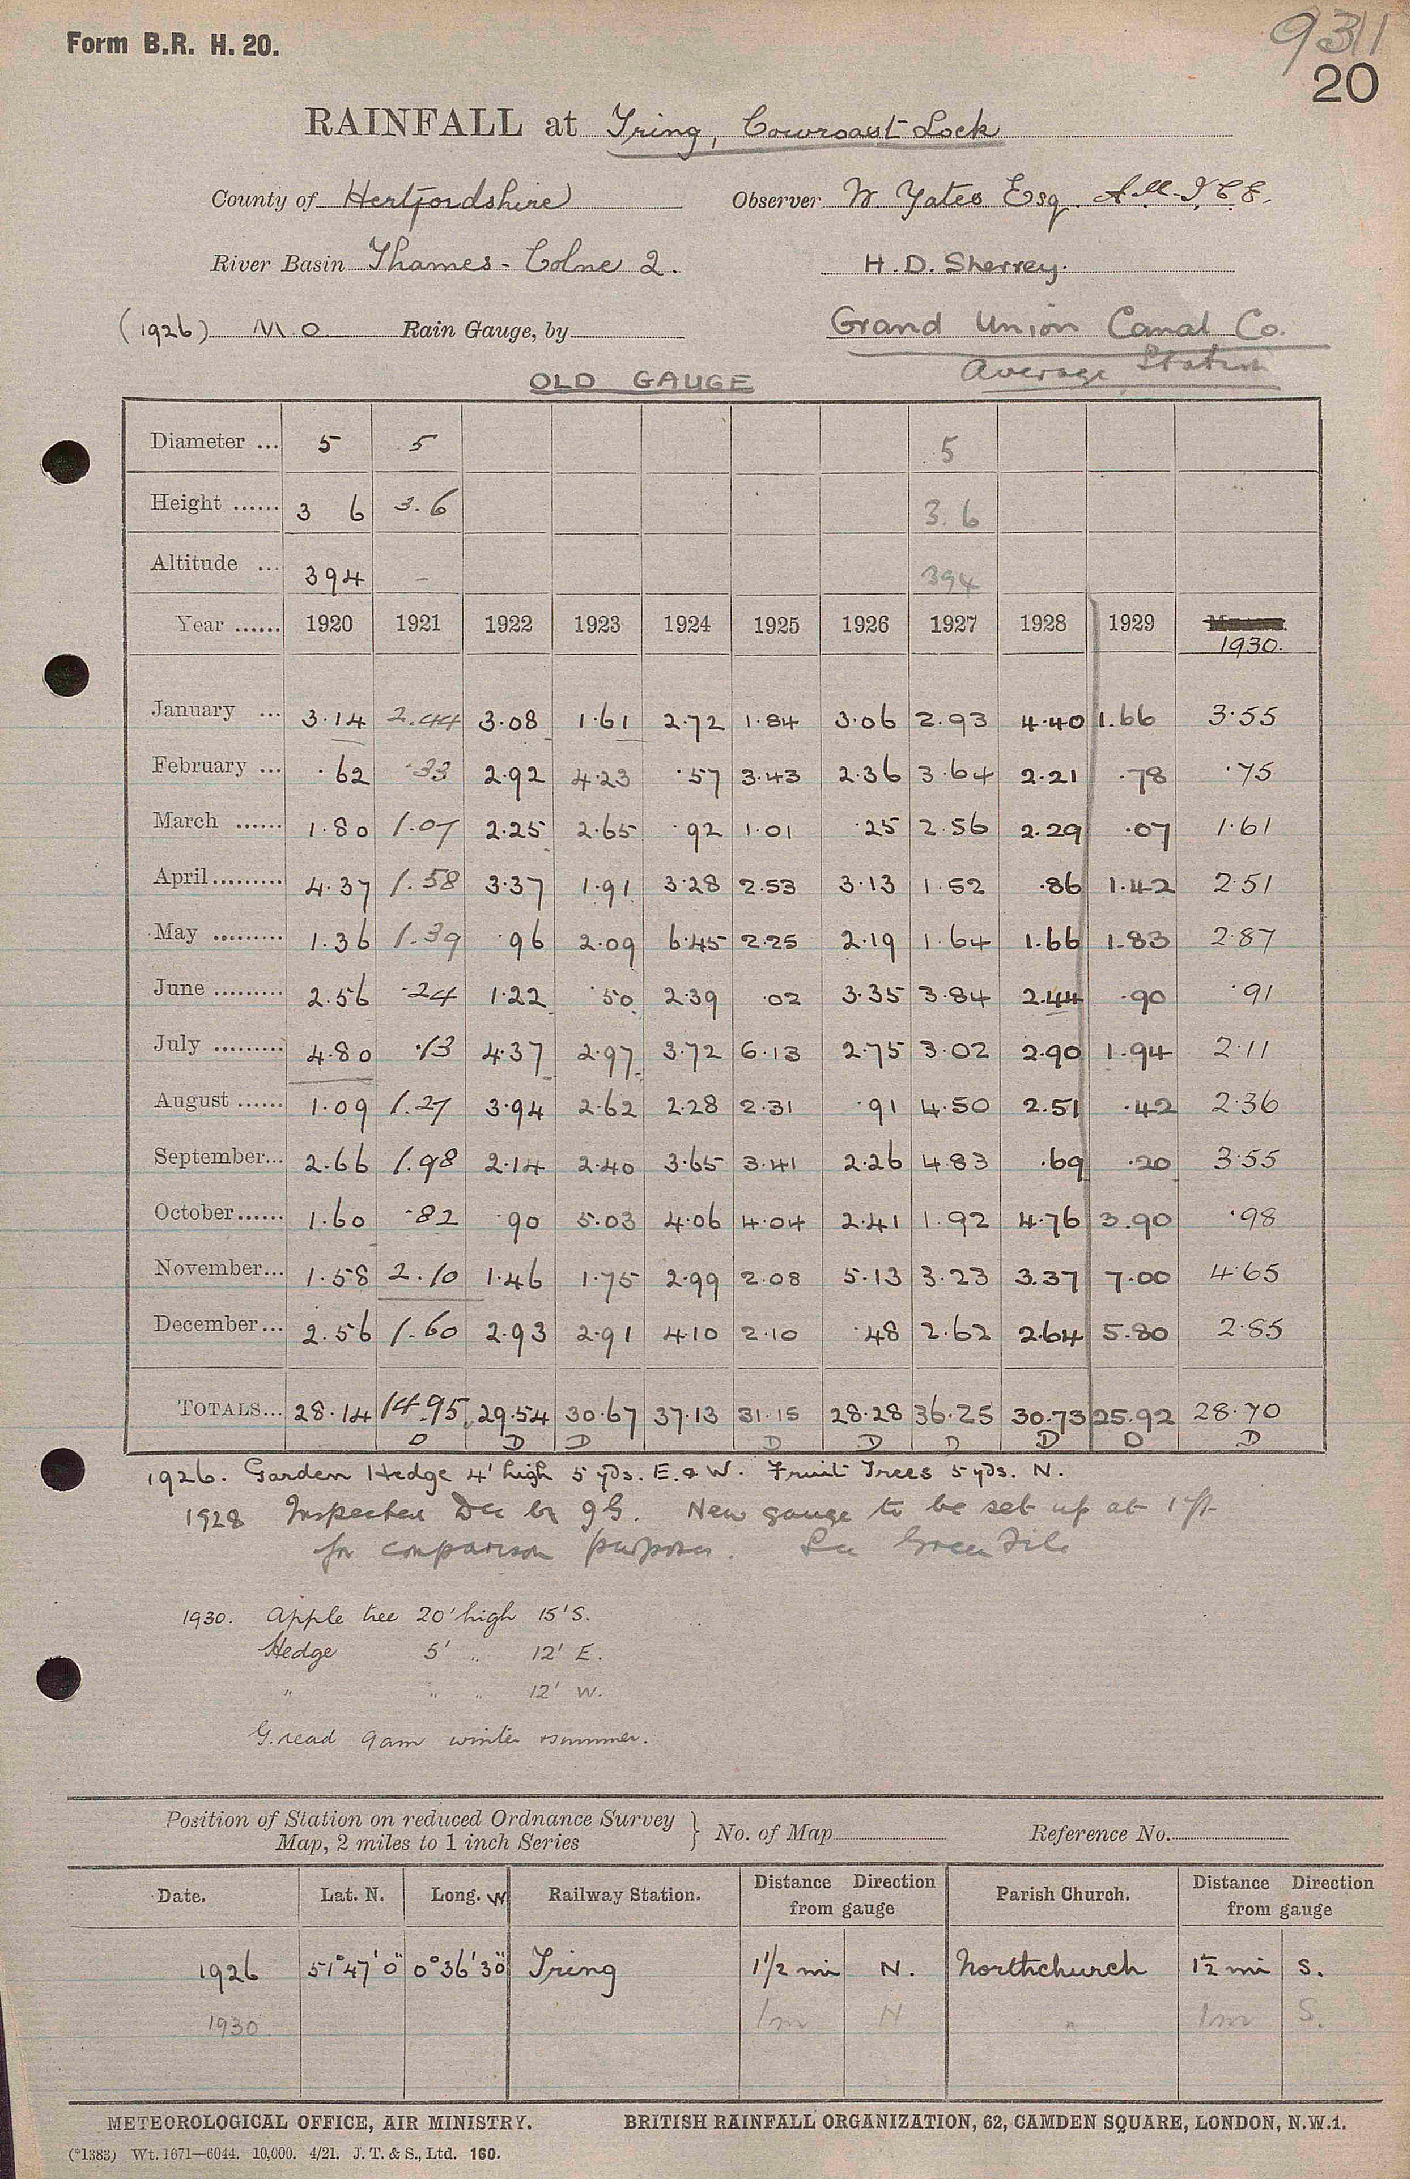 Form B.R. H. 20.
9311
20
RAINFALL at Tring, Cowroast Lock
County of Hertfordshire Observer W Yates Esq A.M.I.C.E.
River Basin Thames - Colne 2. H.D. Sherrey.
(1926) M O Rain Gauge, by Grand Union Canal Co.
OLD GAUGE Average Station
Diameter ... 5 5 5
Height ...... 3 6 3.6 3.6
Altitude ... 394 – 394
Year ...... 1920 1921 1922 1923 1924 1925 1926 1927 1928 1929
1930.
January ... 3.14 2.44 3.08 1.61 2.72 1.84 3.06 2.93 4.40 1.66 3.55
February ... .62 .33 2.92 4.23 .57 3.43 2.36 3.64 2.21 .78 .75
March ...... 1.80 1.07 2.25 2.65 .92 1.01 .25 2.56 2.29 .07 1.61
April......... 4.37 1.58 3.37 1.91 3.28 2.53 3.13 1.52 .86 1.42 2.51
May ......... 1.36 1.39 .96 2.09 6.45 2.25 2.19 1.64 1.66 1.83 2.87
June ......... 2.56 .24 1.22 .50 2.39 .02 3.35 3.84 2.44 .90 .91
July ......... 4.80 .13 4.37 2.97 3.72 6.13 2.75 3.02 2.90 1.94 2.11
August ...... 1.09 1.27 3.94 2.62 2.28 2.31 .91 4.50 2.51 .42 2.36
September... 2.66 1.98 2.14 2.40 3.65 3.41 2.26 4.83 .69 .20 3.55
October...... 1.60 .82 .90 5.03 4.06 4.04 2.41 1.92 4.76 3.90 .98
November... 1.58 2.10 1.46 1.75 2.99 2.08 5.13 3.23 3.37 7.00 4.65
December... 2.56 1.60 2.93 2.91 4.10 2.10 .48 2.62 2.64 5.80 2.85
TOTALS... 28.14 14.95 29.54 30.67 37.13 31.15 28.28 36.25 30.73 25.92 28.70
D D D D D D D D D
1926. Garden Hedge 4' high 5 yds. E. & W. Fruit Trees 5 yds. N.
1928 Inspected Dec by G. New gauge to be set up at 1 ft
for comparison purposes. See Green File
1930. Apple tree 20' high 15' S.
Hedge 5' " 12' E.
" " " 12' W.
G. read 9am winter & summer.
Position of Station on reduced Ordnance Survey
Map, 2 miles to 1 inch Series } No. of Map Reference No.
Date. Lat. N. Long. W Railway Station. Distance from gauge Direction Parish Church. Distance from gauge Direction
1926 51°47'0" 0°36'30" Tring 1 1/2 mi N. Northchurch 1 1/2 mi S.
1930 1m N " 1m S.
METEOROLOGICAL OFFICE, AIR MINISTRY. BRITISH RAINFALL ORGANIZATION, 62, CAMDEN SQUARE, LONDON, N.W.1.
(*1383) Wt. 1671—6044. 10,000. 4/21. J. T. & S., Ltd. 160.